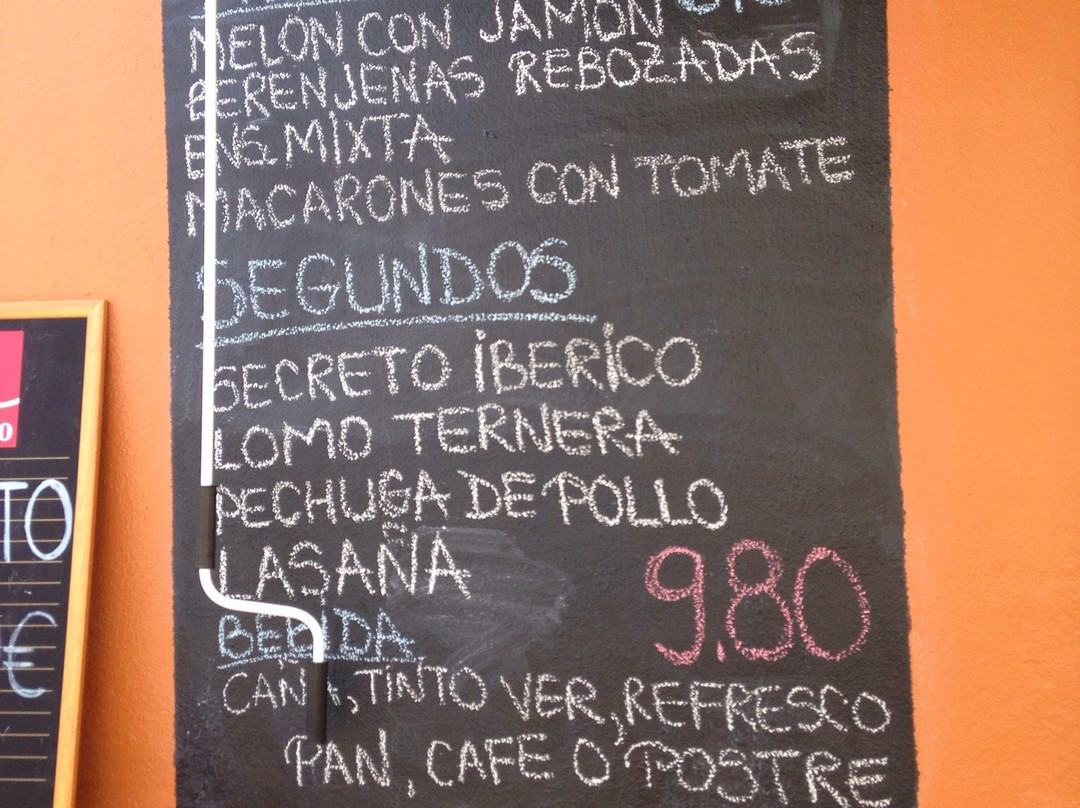 MELÓN CON JAMÓN
BERENJENAS REBOZADAS
ENS. MIXTA
MACARONES CON TOMATE
SEGUNDOS
SECRETO IBERICO
LOMO TERNERA
PECHUGA DE POLLO
LASAÑA
9.80
BEBIDA
CAÑA, TINTO VER, REFRESCO
PAN, CAFE O POSTRE
TO
€